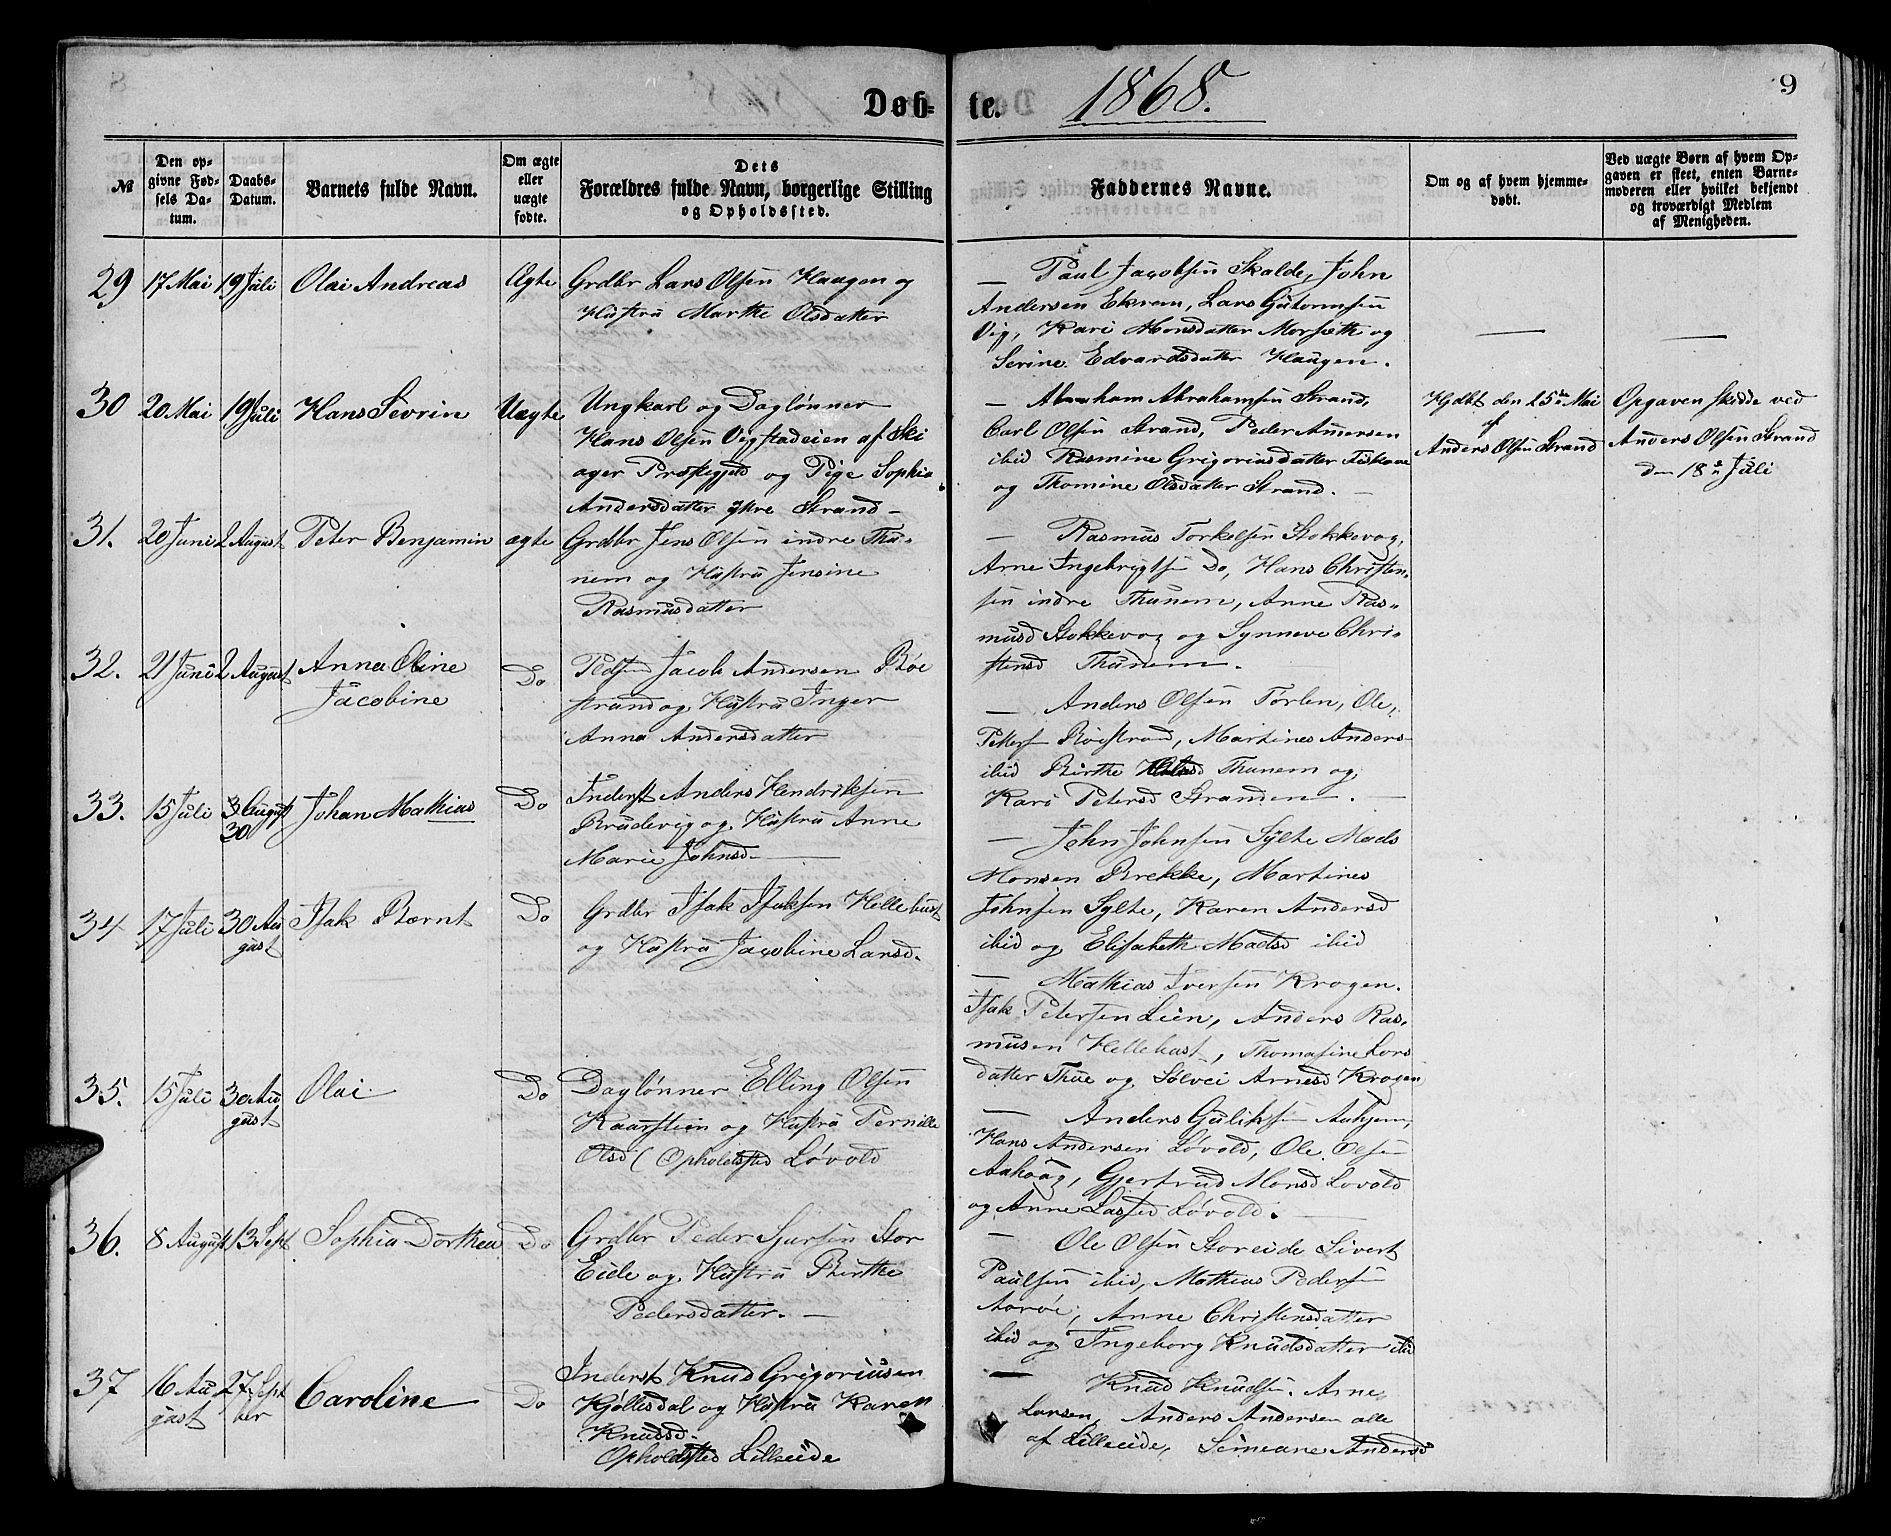 Døb-
te. 1868.
9
№
Den op-
givne Fød-
sels Da-
tum.
Daabs-
Datum.
Barnets fulde Navn.
Om ægte
eller
uægte
fødte.
Dets
Forældres fulde Navn, borgerlige Stilling
og Opholdssted.
Faddernes Navne.
Om og af hvem hjemme-
døbt.
Ved uægte Børn af hvem Op-
gaven er skeet, enten Barne-
moderen eller hvilket bekjendt
og troværdigt Medlem
af Menigheden.
29 17 Mai 19 Juli Olai Andreas Ægte
Grdbr Lars Olsen Haagen og
Hustru Marthe Olsdatter
— Paul Jacobsen Skalde, John
Andersen Ekrem, Lars Guttormsen
Vig, Kari Monsdatter Morsæth og
Serine Edvardsdatter Haugen.
30 20 Mai 19 Juli Hans Sevrin Uægte
Ungkarl og Daglønner
Hans Olsen Vigstadeien af Ski
ager Præstegjeld og Pige Sophia
Andersdatter ytre Strand —
— Abraham Abrahamsen Strand,
Carl Olsen Strand, Peder Andersen
ibid Rasmine Grigoriusdatter
og Thomine Olsdatter Strand. —
Hjdbt den 25de Mai
af
Anders Olsen Strand
Opgaven skedde ved
Anders Olsen Strand
den 18de Juli
31. 20 Juni 2 August Peter Benjamin ægte
Grdbr Jens Olsen indre Thu-
nem og Hustru Jensine
Rasmusdatter
— Rasmus Torkelsen Stokkevog,
Arne Ingebrigts Do, Hans Christen-
sen indre Thunem, Anne Ras-
musd Stokkevog og Synneve Chri-
stensd Thunem.
32. 21 Juni 2 August Anna Oline
Jacobine
Do
Pldsm Jacob Andersen Røe
strand og Hustru Inger
Anna Andersdatter
— Anders Olsen Tørlen, Ole
Petters Røistrand, Martines Anders
ibid Birthe Thunem og
Kari Petersd Stranden. —
33. 15 Juli 30 August Johan Mathias Do
Inderst Anders Hendriksen
Brudevig og Hustru Anne
Marie Johnsd —
— John Johnsen Sylte Mads
Monsen Brekke, Martines
Johnsen Sylte, Karen Andersd
ibid og Elisabeth Madsd ibid
34 17 Juli 30 Au
gust
Isak Bærnt Do
Grdbr Isak Isaksen Hellebust
og Hustru Jacobine Larsd.
— Mathias Iversen Krogen.
Isak Petersen Lien, Anders Ras-
musen Hellebust, Thomasine Lars
datter Thue og Sølvei Arnesd Krogen
35. 15 Juli 30 Au
gust
Olai Do
Daglønner Elling Olsen
Kaarstein og Hustru Pernille
Olsd (Opholdsted Løvold
— Anders Guliks Auhjem,
Hans Andersen Løvold, Ole Olsen
Aakaag, Gjertrud Monsd Lovold
og Anne Løvold. —
36. 8 August 13 Sept Sophia Dorthea Do
Grdbr Peder Sjursen Stor
Eide og Hustru Birthe
Pedersdatter. —
— Ole Olsen Storeide Sivert
Paulsen ibid, Mathias Pedersen
Aarøe, Anne Christensdatter
ibid og Ingeborg Knudsdatter ibid
37 16 Au
gust
27 Sept
ber
Caroline Do
Inderst Knud Grigoriusen
Kjøllesdal og Hustru Karen
Knudsd.
Opholdsted Lilleeide
— Knud Knudsen. Arne
Larsen, Anders Andersen alle
af Lilleeide, Simeane Andersd